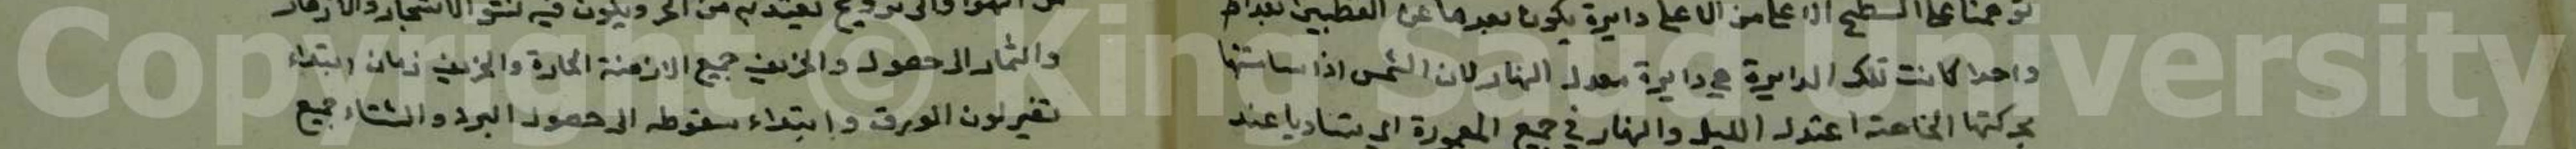 توهمنا على السطح الاعلى من الاعلى دايرة يكون بعدها عن القطبين بعدا
واحدا كانت تلك الدايرة هي دايرة معدل النهار لان الشمس اذا سامتتها
بحركتها الخاصة اعتدل الليل والنهار في جميع المعمورة اي يتساويا عند
من الهوا والى ترويح يعتد به من الحر ويكون فيه نشو الاشجار والازهار
والثمار الى حصول والخريف جميع الازمنة الحارة والخريف زمان ابتداء
تغير لون الورق وابتداء سقوطه الى حصول البرد والشتاء جميع
Copyright © King Saud University